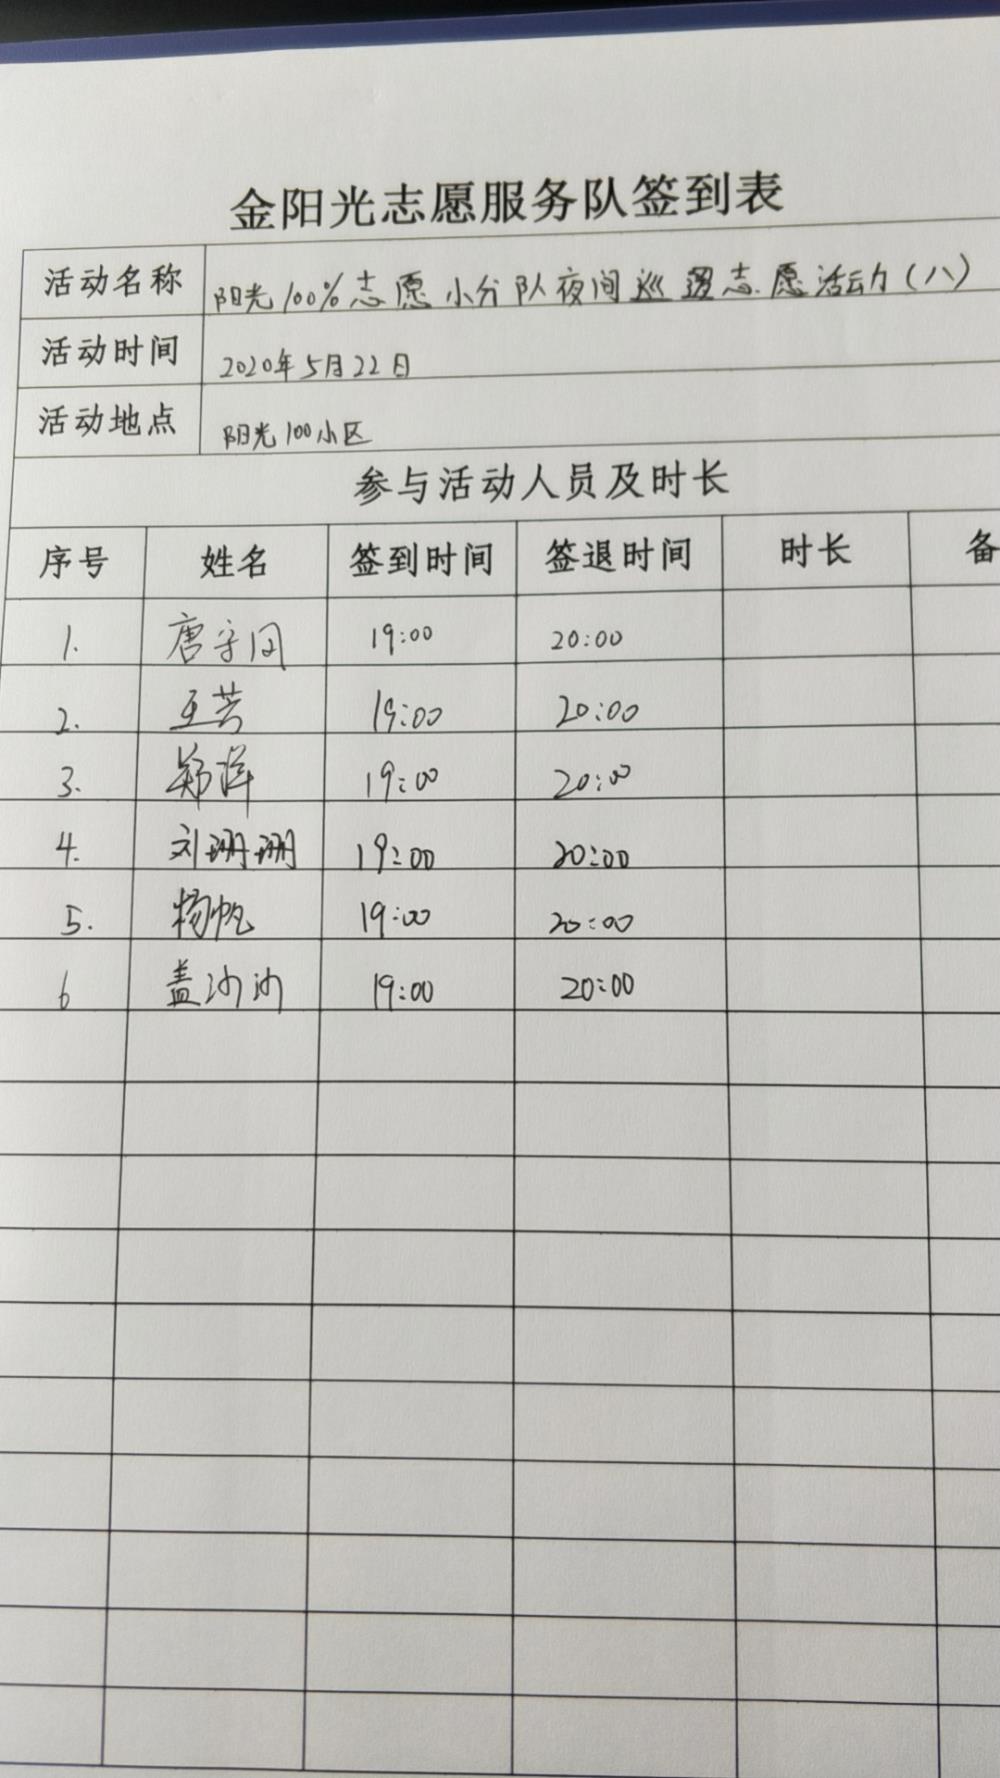 金阳光志愿服务队签到表
活动名称 阳光100%志愿小分队夜间巡逻志愿活动(八)
活动时间 2020年5月22日
活动地点 阳光100小区
参与活动人员及时长
序号 姓名 签到时间 签退时间 时长 备
1. 唐守同 19:00 20:00
2. 王芳 19:00 20:00
3. 郑洋 19:00 20:00
4. 刘珊珊 19:00 20:00
5. 杨帆 19:00 20:00
6 盖沙沙 19:00 20:00